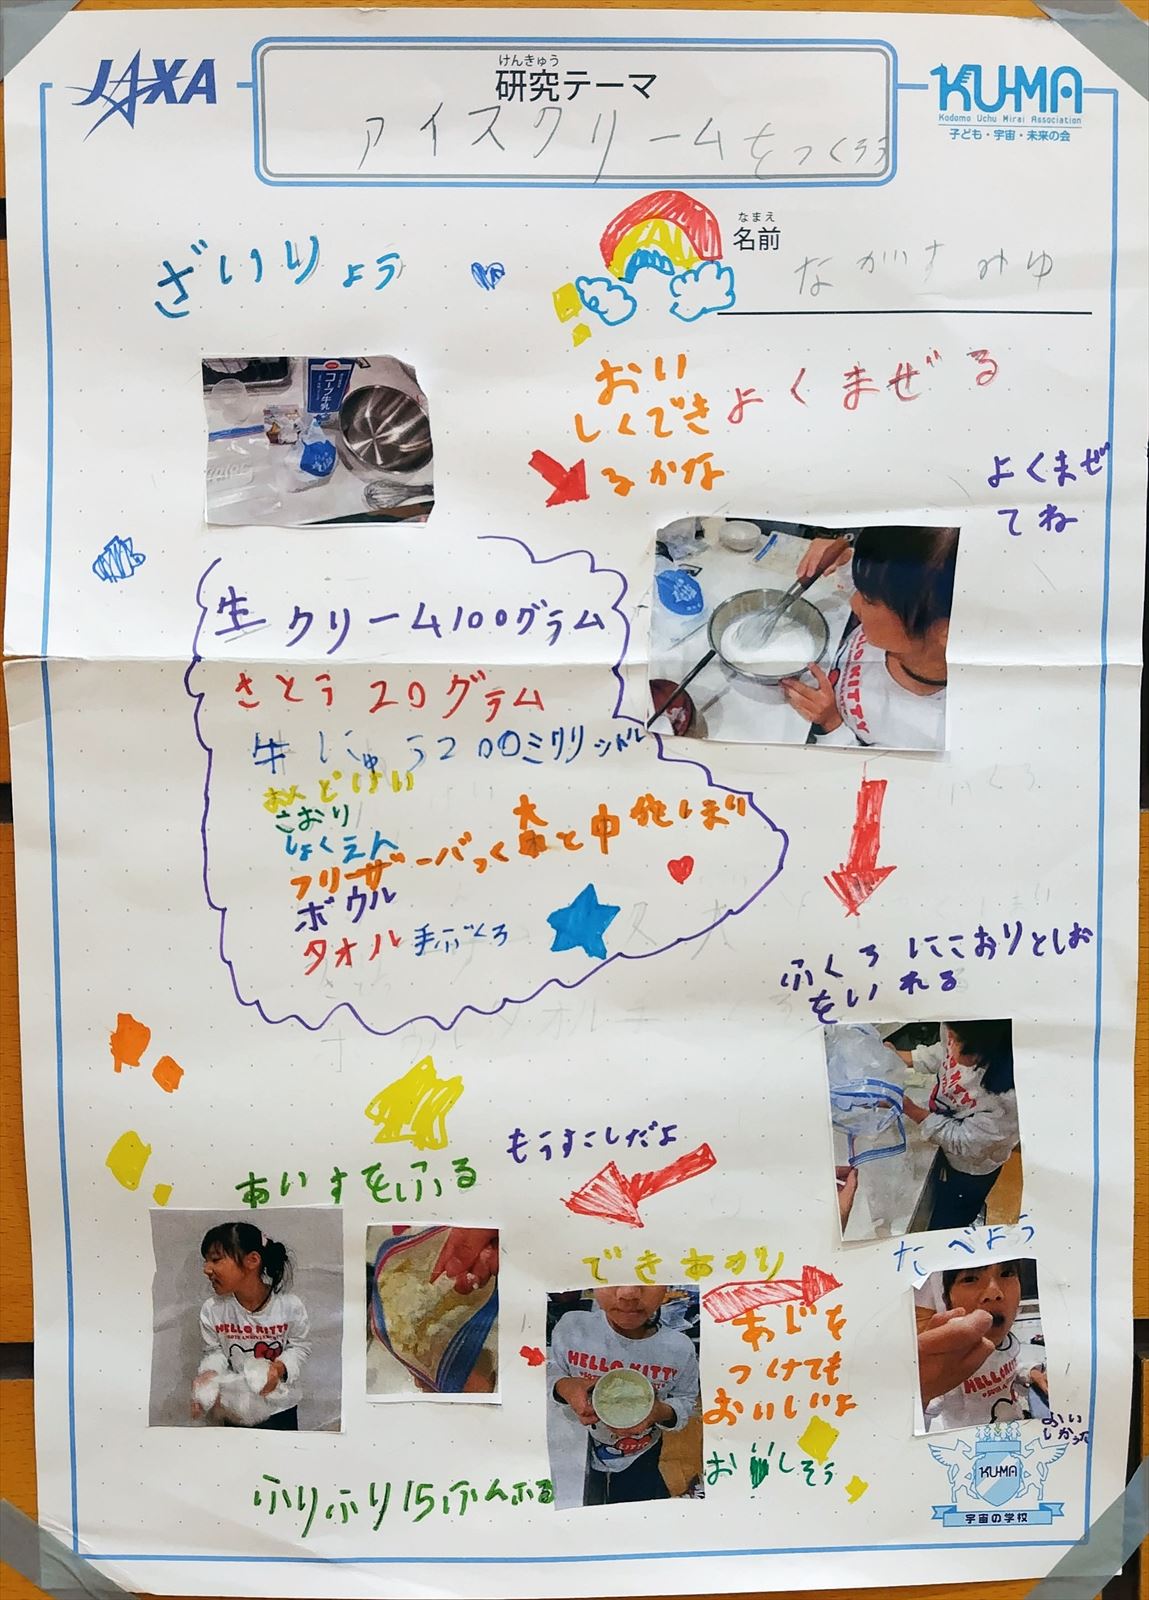 JAXA
けんきゅう
研究テーマ
アイスクリームをつくろう
KU-MA
Kodomo Uchu Mirai Association
子ども・宇宙・未来の会
なまえ
名前
ながすみゆ
ざいりょう
コープ牛乳
おい
しくでき
るかな
よくまぜる
よくまぜ
てね
生クリーム100グラム
さとう20グラム
牛にゅう200ミリリットル
おんどけい
こおり
しょくえん
フリーザーバっく大と中
ボウル
タオル 手ぶくろ
HELLO KITTY
ふくろにこおりとしお
をいれる
もうすこしだよ
あいすをふる
HELLO KITTY
ふりふり15ふんふる
できあがり
HELLO KITTY
あじを
つけても
おいしいよ
たべよう
HELLO KITTY
おい
しかった
KU-MA
宇宙の学校